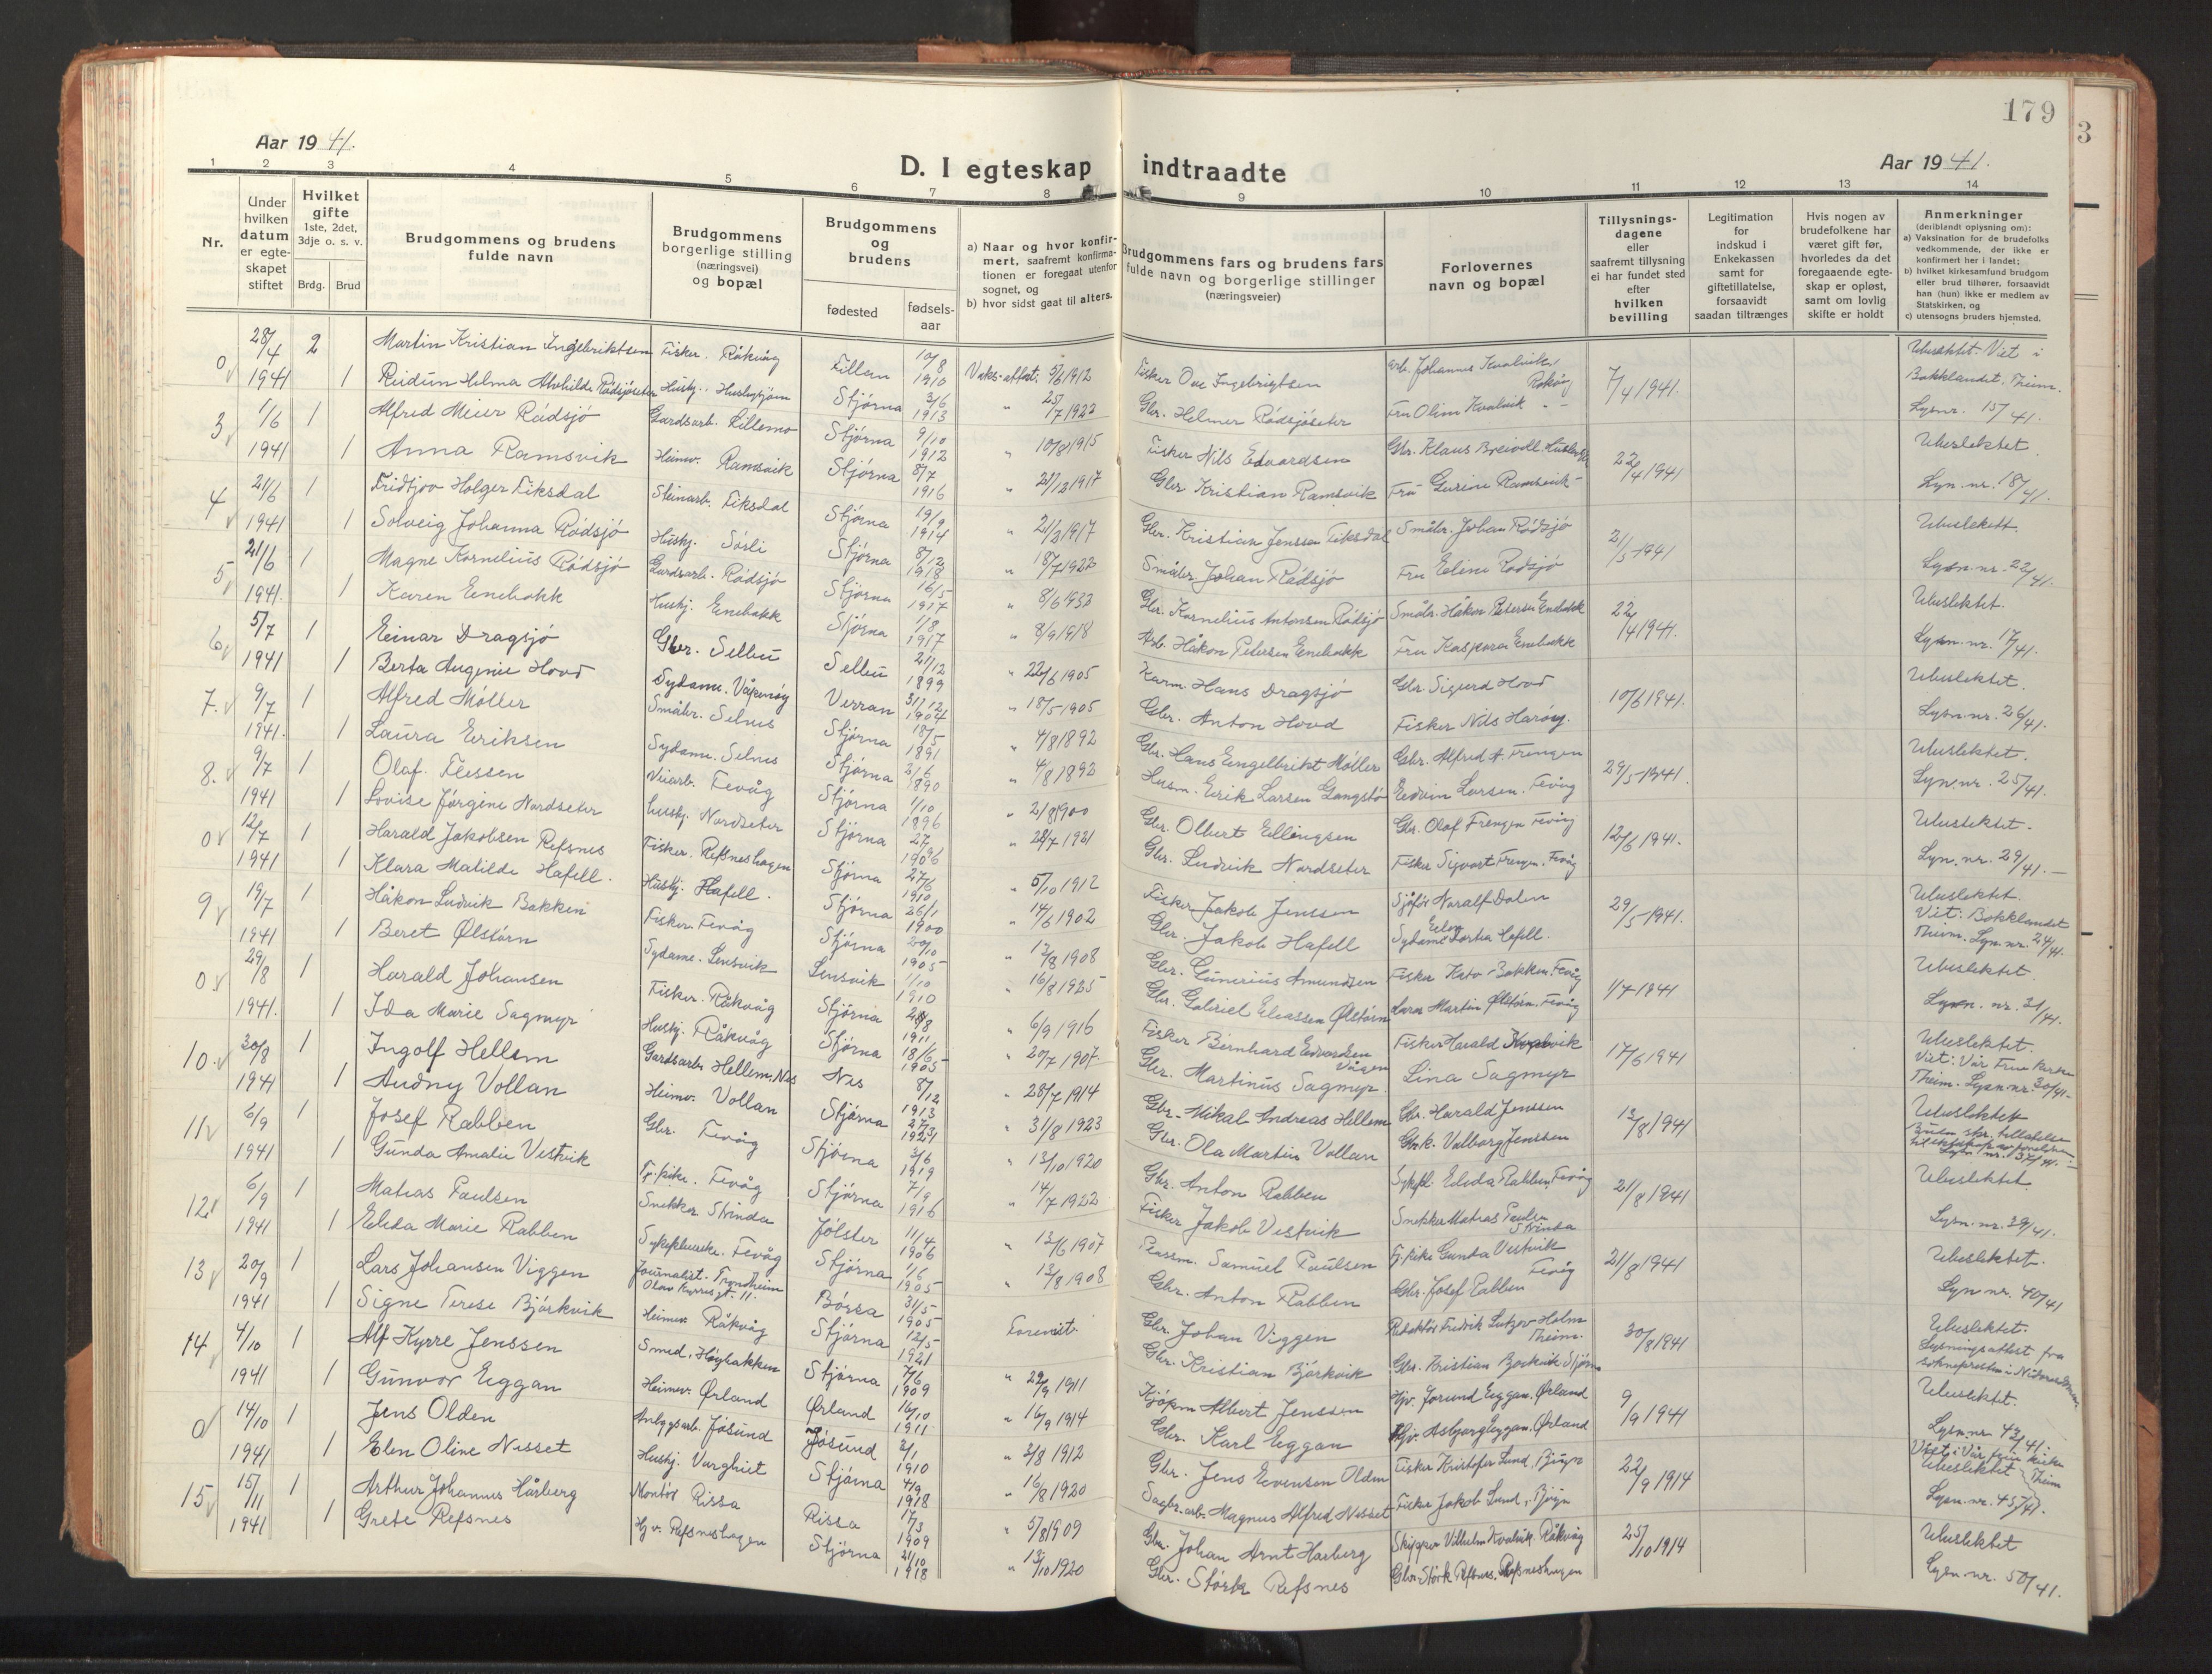 179
3
Aar 1941.
D. I egteskap indtraadte
Aar 1941.
1 2 3 4 5 6 7 8 9 10 11 12 13 14
Nr.
Under hvilken datum er egteskapet stiftet
Hvilket gifte 1ste, 2det, 3dje o. s. v.
Brdg. Brud
Brudgommens og brudens fulde navn
Brudgommens borgerlige stilling (næringsvei) og bopæl
Brudgommens og brudens
fødested fødselsaar
a) Naar og hvor konfirmert, saafremt konfirmationen er foregaat utenfor sognet, og
b) hvor sidst gaat til alters.
Brudgommens fars og brudens fars fulde navn og borgerlige stillinger (næringsveier)
Forlovernes navn og bopæl
Tillysningsdagene eller saafremt tillysning ei har fundet sted efter hvilken bevilling
Legitimation for indskud i Enkekassen samt for giftetillatelse, forsaavidt saadan tiltrænges
Hvis nogen av brudefolkene har været gift før, hvorledes da det foregaaende egteskap er opløst, samt om lovlig skifte er holdt
Anmerkninger (deriblandt oplysning om):
a) Vaksination for de brudefolks vedkommende, der ikke er konfirmert her i landet;
b) hvilket kirkesamfund brudgom eller brud tilhører, forsaavidt han (hun) ikke er medlem av Statskirken, og
c) utensogns bruders hjemsted.
0 28/4 1941 2 Martin Kristian Ingebriktsen Fisker. Råkvåg Fillan 10/8 1910 Vaks-attest. 9/6 1912 Fisker Ove Ingebrigtsen arb. Johannes Kvalvik, Råkvåg 7/4 1941. Uteslektet. Viet i
1 Reidun Helma Alvhilde Rødsjøseter Huskj. Husbysjøen Stjørna 3/6 1913 " 25/7 1922 Gbr. Helmer Rødsjøseter Fru Olim Kvalvik " - Bakklandet, Theim. Lysnr. 15/41.
3 1/6 1941 1 Alfred Meier Rødsjø Gardsarb. Lillemo Stjørna 9/10 1912 " 10/8 1915 Fisker Nils Edvardsen Gbr. Klaus Breivoll 22/4 1941 Uteslektet.
1 Anna Ramsvik Heimev. Ramsvik Stjørna 8/7 1916 " 21/12 1917 Gbr. Kristian Ramsvik Fru Gurine Ramsvik - Lyn. nr. 18/41.
4 21/6 1941 1 Fridtjov Holger Fiksdal Steinarb. Fiksdal Stjørna 19/9 1914 " 21/2 1917 Gbr. Kristian Jenssen Fiksdal Småbr. Johan Rødsjø 21/5 1941 Uteslektet
1 Solveig Johanna Rødsjø Huskj. Sørli Stjørna 8/12 1918 " 18/7 1922 Småbr. Johan Rødsjø Fru Eline Rødsjø Lysn. nr. 22/41.
5 21/6 1941. 1 Magne Kornelius Rødsjø Gardsarb. Rødsjø Stjørna 16/5 1917 " 8/6 1932 Gbr. Kornelius Antonsen Rødsjø Småbr. Håkon Petersen Enebakk 22/4 1941. Uteslektet.
1 Karen Enebakk Huskj. Enebakk Stjørna 1/8 1917 " 8/9 1918 Arb. Håkon Petersen Enebakk Fru Kaspara Enebakk Lysn. nr. 17/41.
6 5/7 1941 1 Einar Dragsjø Gbr. Selleu Selleu 21/12 1899 " 22/6 1905 Hans Dragsjø Gbr. Sigurd Hovd 10/6 1941. Uteslektet.
1 Berta Augenie Hovd Sydame. Verran 31/12 1904 " 18/5 1905 Gbr. Anton Hovd Fisker Nils Harøy. Lysn. nr. 26/41.
7. 9/7 1941. 1 Alfred Møller Småbr. Selnes Stjørna 18/5 1891 " 4/8 1892 Gbr. Hans Engelbrikt Møller Gbr. Alfred A. Frengen 29/5 1941. Uteslektet.
1 Laura Eriksen Sydame. Selnes Stjørna 2/6 1890 " 4/8 1892 Husm. Erik Larsen Gangstø Edvin Larsen. Fevåg Lysn. nr. 25/41.
8. 9/7 1941 1 Olaf. Elessen Veiarb. Fevåg Stjørna 1/10 1896 " 2/8 1900 Gbr. Olbert Ellingsen Gbr. Olaf Frengen Fevåg 12/6 1941. Uteslektet.
1 Lovise Jørgine Nordseter Huskj. Nordseter Stjørna 1906 " 28/7 1921 Gbr. Ludvik Nordseter Fisker Sigvart Frengen. Fevåg Lyn. nr. 29/41.
0 12/7 1941 1 Harald Jakobsen Refsnes Fisker. Refsneshagen Stjørna 27/6 1910 " 5/10 1912 Fisker Jakob Jenssen Sjåfør Noralf Dalen 29/5 1941. Uteslektet.
1 Klara Matilde Hafell. Huskj. Hafell. Stjørna 26/1 1900 " 14/6 1902 Gbr. Jakob Hafell Sydame Dortea Hafell. Viet: Bakklandet Theim. Lysn. nr. 24/41.
9 19/7 1941 1 Håkon Ludvik Bakken Fisker. Fevåg Stjørna 20/10 1905 " 12/8 1908 Gbr. Gunerius Amundsen Fisker Bakken. Fevåg 1/7 1941 Uteslektet.
1 Beret Ølstørn Sydame. Lensvik Lensvik 1/10 1910 " 16/8 1925 Gbr. Gabriel Eliassen Ølstørn Martin Ølstørn. Fevåg Lysn. nr. 31/41.
0 29/8 1941. 1 Harald Johansen Fisker. Råkvåg Stjørna 1911 " 6/9 1916 Fisker Bernhard Edvardsen Vågen Fisker Harald Kvalvik 17/6 1941 Uteslektet.
1 Ida Marie Sagmyr Huskj. Råkvåg Stjørna 18/6 1905 " 20/7 1907. Gbr. Martinus Sagmyr. Lina Sagmyr Viet: Vår Frue kirke Theim. Lysn. nr. 30/41.
10 30/8 1941 1 Ingolf Hellem Gardsarb. Hellem, Nes Nes 8/12 1913 " 28/7 1914 Gbr. Mikal Andreas Hellem Gbr. Harald Jenssen 12/8 1941 Uteslektet
1 Audny Vollan Heimev. Vollan Stjørna 27/3 1921 " 31/8 1923 Gbr. Ola Martin Vollan Gbrk. Valborg Jenssen Lysn. nr. 37/41.
11 6/9 1941 1 Josef Rabben Gbr. Fevåg Stjørna 3/6 1919 " 13/10 1920 Gbr. Anton Rabben Sykepl. Elida Rabben, Fevåg 21/8 1941 Uteslektet.
1 Gunda Amalie Vestvik Tj.pike. Fevåg Stjørna 7/9 1916 " 14/7 1922 Fisker Jakob Vestvik Snekker Matias Paulsen Strinda Lysn. nr. 39/41.
12 6/9 1941 1 Matias Paulsen Snekker Strinda Jølster 11/4 1906 " 12/6 1907 Samuel Paulsen Tj.pike Gunda Vestvik Fevåg 21/8 1941 Uteslektet.
1 Elida Marie Rabben Sykepleierske. Fevåg Stjørna 1/6 1905 " 12/8 1908 Gbr. Anton Rabben Gbr. Josef Rabben Lyn nr. 40/41
13 20/9 1941 1 Lars Johansen Viggen Journalist. Trondheim Olav Kyrres gt. 11. Børsa 31/5 1905 Gbr. Johan Viggen Redaktør Fredrik Lutzow Holm Theim. 30/8 1941 Uteslektet.
1 Signe Terese Bjørkvik Heimev. Råkvåg Stjørna 12/5 1921 Gbr. Kristian Bjørkvik Gbr. Kristian Bjørkvik Stjørna Lysningsattest fra soknepresten i
14 4/10 1941 1 Alf Kyrre Jenssen Smed, Høybakken Stjørna 7/6 1909 " 22/9 1911 Kjøpm Albert Jenssen Hjv. Jorund Eggan. Ørland 9/9 1941 Uteslektet.
1 Gunvor Eggan Heimev. Ørland Ørland 16/10 1911 " 16/9 1914 Gbr. Karl Eggan Hjv. Asbjørg Eggan, Ørland Lysn. nr 43/41.
0 14/10 1941 1 Jens Olden Anleggsarb. Jøsund Jøsund 2/1 1910 " 3/8 1912 Gbr. Jens Evensen Olden Fisker Kristofer Lund, Bjugn 22/9 1914 Viet i Vår Frue kirke Theim Uteslektet
1 Elen Oline Nesset Huskj. Varghiet Stjørna 4/9 1918 " 16/8 1920 Sagbr.arb. Magnus Alfred Nesset Fisker Jakob Lund, Bjugn Lysn. nr. 45/41.
15 15/11 1941 1 Arthur Johannes Hårberg Montør Rissa Rissa 17/3 1909 " 5/8 1909 Gbr. Johan Arnt Harberg Skipper Vilhelm Kvalvik. Råkvåg 25/10 1914 Uteslektet
1 Grete Refsnes Hjv. Refsneshagen Stjørna 21/10 1918 " 13/10 1920 Gbr. Størk Refsnes Gbr. Størk Refsnes. Refsneshagen Lysn. nr. 50/41.